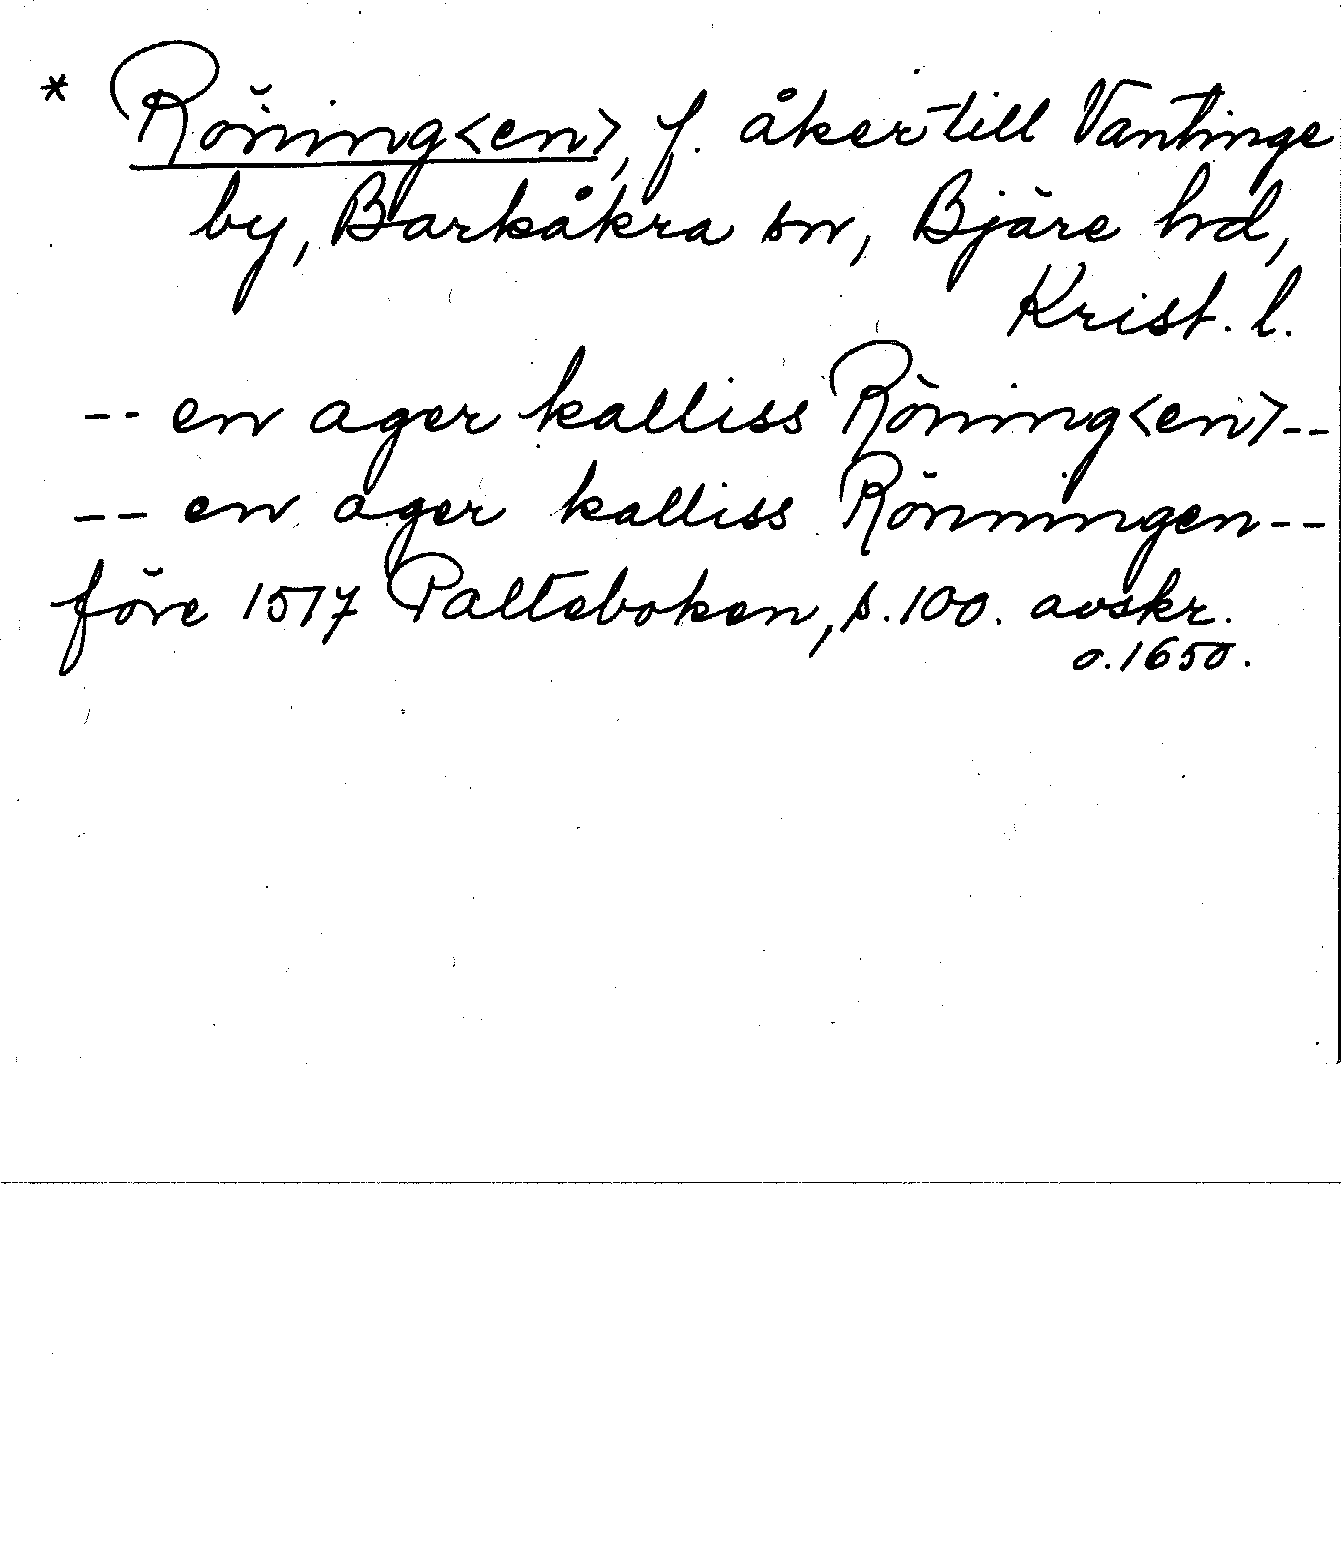 * Röning<en>, f. åker till Vantinge
by, Barkåkra sn, Bjäre hd,
Krist. l.
-- en ager kalliss Röning<en>--
-- en ager kalliss Rönningen--
före 1517 Palteboken, s. 100. avskr.
o. 1650.